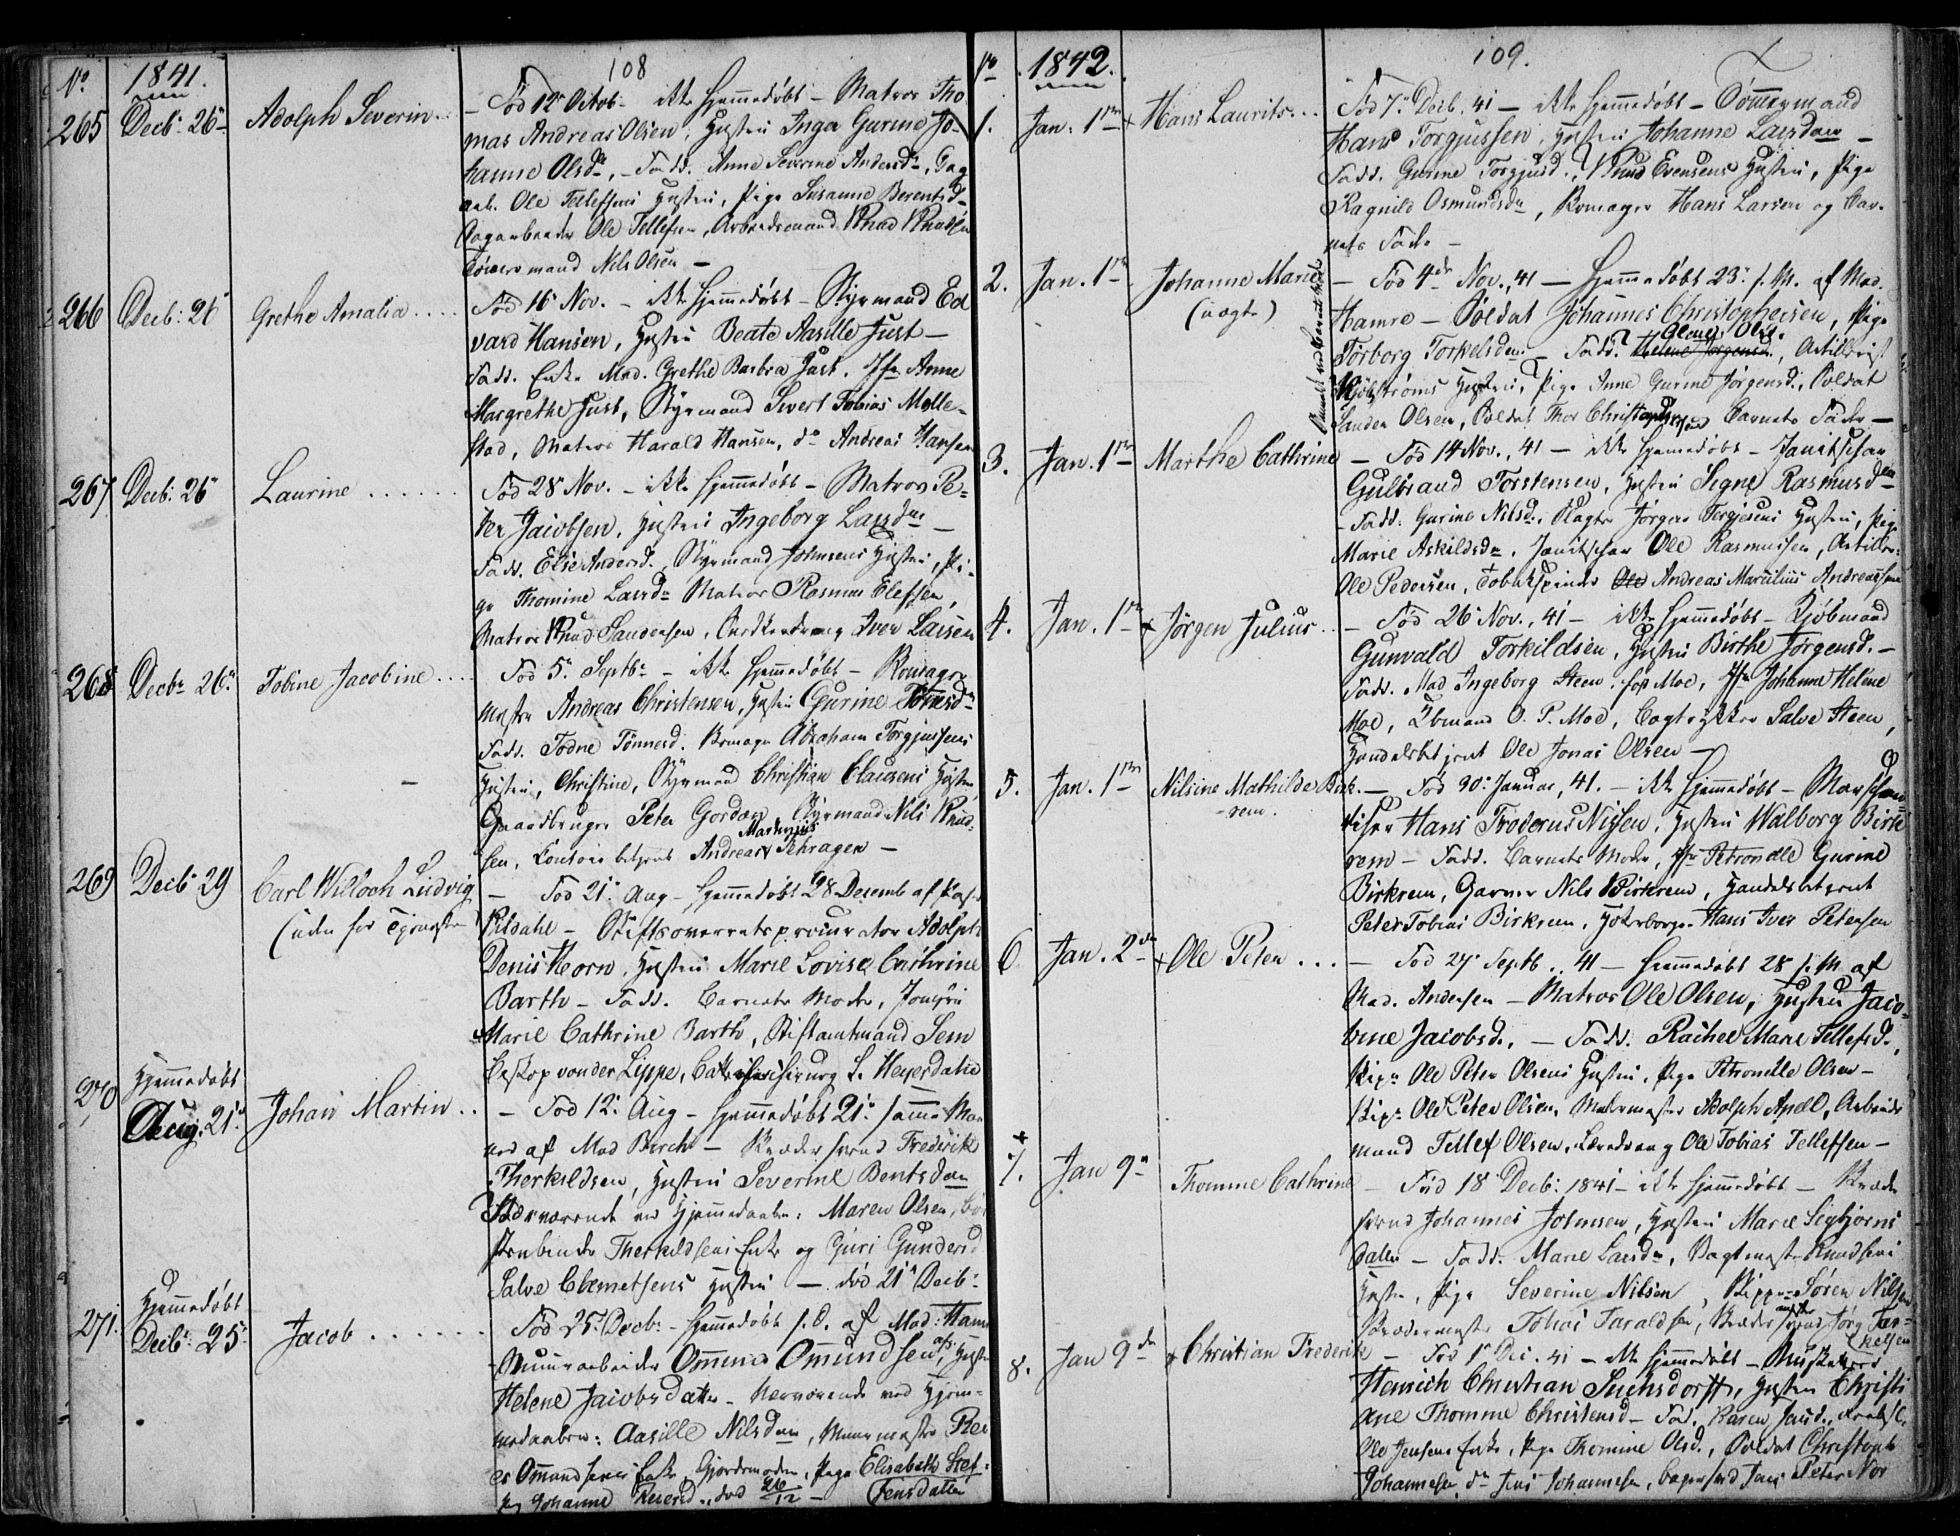 108
No 1841.
265 Decbr 26 Adolph Severin
Død 12 Octob – ikke hjemmedøbt – Matros Tho
mas Andreas Olsen, Hustru Inger Gurine Jo-
hanne Olsdr, – Fadd. Anne Severine Andersdr,
Ole Tellefsens Hustru, Pige Susanne Berentsd
Ole Tellefsen, Arbeidsmand Knud Knudsen
Tømmermand Nils Olsen –
266 Decb: 26 Grethe Amalia
Fød 16 Nov. – ikke hjemmedøbt – Styrmand Ed
vard Hansen, Hustru Beate Aasille Just –
Fadd. Enke Mad. Grethe Barbra Just, Jfr Anne
Margrethe Just, Styrmand Sivert Tobias Molle-
stad, Matros Harald Hansen, do Andreas Hansen
267 Decb: 26 Laurine
Fød 28 Nov. – ikke hjemmedøbt – Matros Pe-
ter Jacobsen, Hustru Ingeborg Larsdr –
Fadd. Else Andersd., Styrmand Johnsens Hustru, Pi-
ge Thomine Larsdr Matros Rasmus Elefsen,
Matros Knud Sandersen, Iver Larsen
268 Decbr 26 Tobine Jacobine
Fød 5 Septbr – ikke hjemmedøbt –
Andreas Christensen, Hustru Gurine Tønnesdr
Fadd. Todne Tønnesd. Abraham Torgjussens
Hustru, Christine, Styrmand Christian Clausens Hustru
Gaardbruger Peter Gordon, Styrmand Nils Knud-
sen, Contoir betjent Andreas Martinius Schragen –
269 Decb 29 Carl Willoch Ludvig
– Fød 21 Aug – hjemmedøbt 28 Decemb af
Kildahl – Stiftsoverretsprocurator Adolph
Denis Horn, Hustru Marie Lovise Cathrine
Barth – Fadd. Barnets Moder, Jomfru
Marie Cathrine Barth, Stiftamtmand Sem
Biskop von der Lippe, S. Heyerdahl
270 Hjemmedøbt
Aug. 21 Johan Martin
– Fød 12 Aug – hjemmedøbt 21 samme Maa
ned af Mad Birch – Skræder svend Frederik
Therkildsen, Hustru Severine Bentsdatr
ved Hjemmedaaben: Maren Olsen,
Therkildsens Enke og Guri Gundersd
Salve Clemetsens Hustru – død 21 Decb
271. Hjemmedøbt
Decbr 25 Jacob
Fød 25 Decbr – hjemmedøbt s. D. af Mad: Hamre
Muurarbeider Ommund Omundsen, Hustru
Helene Jacobsdatter – Nærværende ved Hjem-
medaaben: Aasille Nilsdatr, Muurmester Rei
er Omundsens Enke, Gjordemoder, Pige Elisabeth Stef-
Johanne Reiersd., død 26/12 – fensdatter
109.
No 1842.
1. Jan. 1ste Hans Laurits
Fød 7 Decb. 41 – ikke hjemmedøbt – Tømmermand
Hans Torgjussen, Hustru Johanne Larsdatr –
Fadd. Gurine Torgjusd., Knud Evensens Hustru, Pige
Ragnild Osmundsdr, Hans Larsen og Bar-
nets Fader –
2. Jan. 1ste Johanne Marie
(uægte)
– Fød 4de Nov., 41 – Hjemmedøbt 23 s. M. af Mad.
Hamre – Soldat Johannes Christophersen, Pige
Torborg Torkelsdr – Fadd. Helene Jørgensd., Artillerist
Hustru, Pige Anne Gurine Jørgensd., Soldat
Sander Olsen, Soldat Thor Christophersen Barnets Fader –
3. Jan. 1ste Marthe Cathrine
– Fød 14 Nov., 41 – ikke hjemmedøbt – Janitschar
Gulbrand Torstensen, Hustru Signe Rasmusd
– Fadd. Gurine Nilsd., Slagter Jørgen Tergjesens Hustru, Pige
Marie Askildsdr, Janitschar Ole Rasmussen, Artiller:
Ole Pedersen, Tobakspinder Ole Andreas Marcilius Andreassen
4. Jan. 1ste Jørgen Julius
– Fød 26 Nov., 41 – ikke hjemmedøbt – Kjøbmand
Gunvald Torkildsen, Hustru Birthe Jørgensd. –
Fadd. Mad Ingeborg Steen, født Moe, Jfr Johanne Helene
Moe, Kbmand O. P. Moe, Bogtrykker Salve Steen,
Handelsbetjent Ole Jonas Olsen –
5. Jan. 1ste Nilsine Mathilde Birk-
rem.
– Fød 30 Januar, 41. – ikke hjemmedøbt –
Hans Froderus Nissen, Hustru Walborg Birk
rem – Fadd. Barnets Moder, Jfr Petronelle Gurine
Birkrem, Garver Nils Birkrem, Handelsbetjent
Peter Tobias Birkrem, Hans Iver Petersen
6 Jan. 2den Ole Peter
– Fød 27 Septb., 41 – hjemmedøbt 28 s. M. af
Mad. Andersen – Matros Ole Olsen, Hustru Jaco-
bine Jacobsd., – Fadd. Rachel Marie Tellefsd.,
Skipr Ole Peter Olsens Hustru, Pige Petronelle Olsen –
Skipr Ole Peter Olsen, Malermester Adolph Apall, Arbeids
mand Tellef Olsen, Ole Tobias Tellefsen –
7. Jan 9 Thomine Cathrine
– Fød 18 Decb: 1841 – ikke hjemmedøbt – Skræder
svend Johannes Johnsen, Hustru Marie Sigbjørns
datter – Fadd. Marie Larsdr, Vagtmester Knudsens
Hustru, Pige Severine Nilsen, Skipper Søren Nilsen
Skrædermester Tobias Taraldsen, Skræder svend Jørg Ter-
kelsen
8. Jan 9de Christian Frederik
– Fød 1 Dec. 41 – ikke hjemmedøbt – Musketeer
Henrich Christian Suchsdorff, Hustru Christi
ane Thomine Christensd – Fad. Karen Jansd.,
Ole Jensens Enke, Pige Thomine Olsd., Soldat Christoph
Johannesen, do Jens Johannesen, Bagersvend Jens Peter Nor